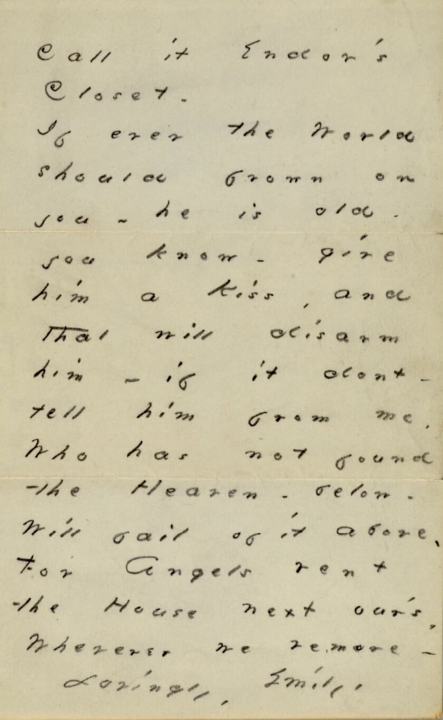 Call it Endor's
Closet.
If ever the World
should frown on
you - he is old -
you know - give
him a Kiss, and
that will disarm
him - if it dont -
tell him from me,
Who has not found
the Heaven - below -
Will fail of it above,
For Angels rent
the House next our's,
Wherever we remove -
Lovingly, Emily.